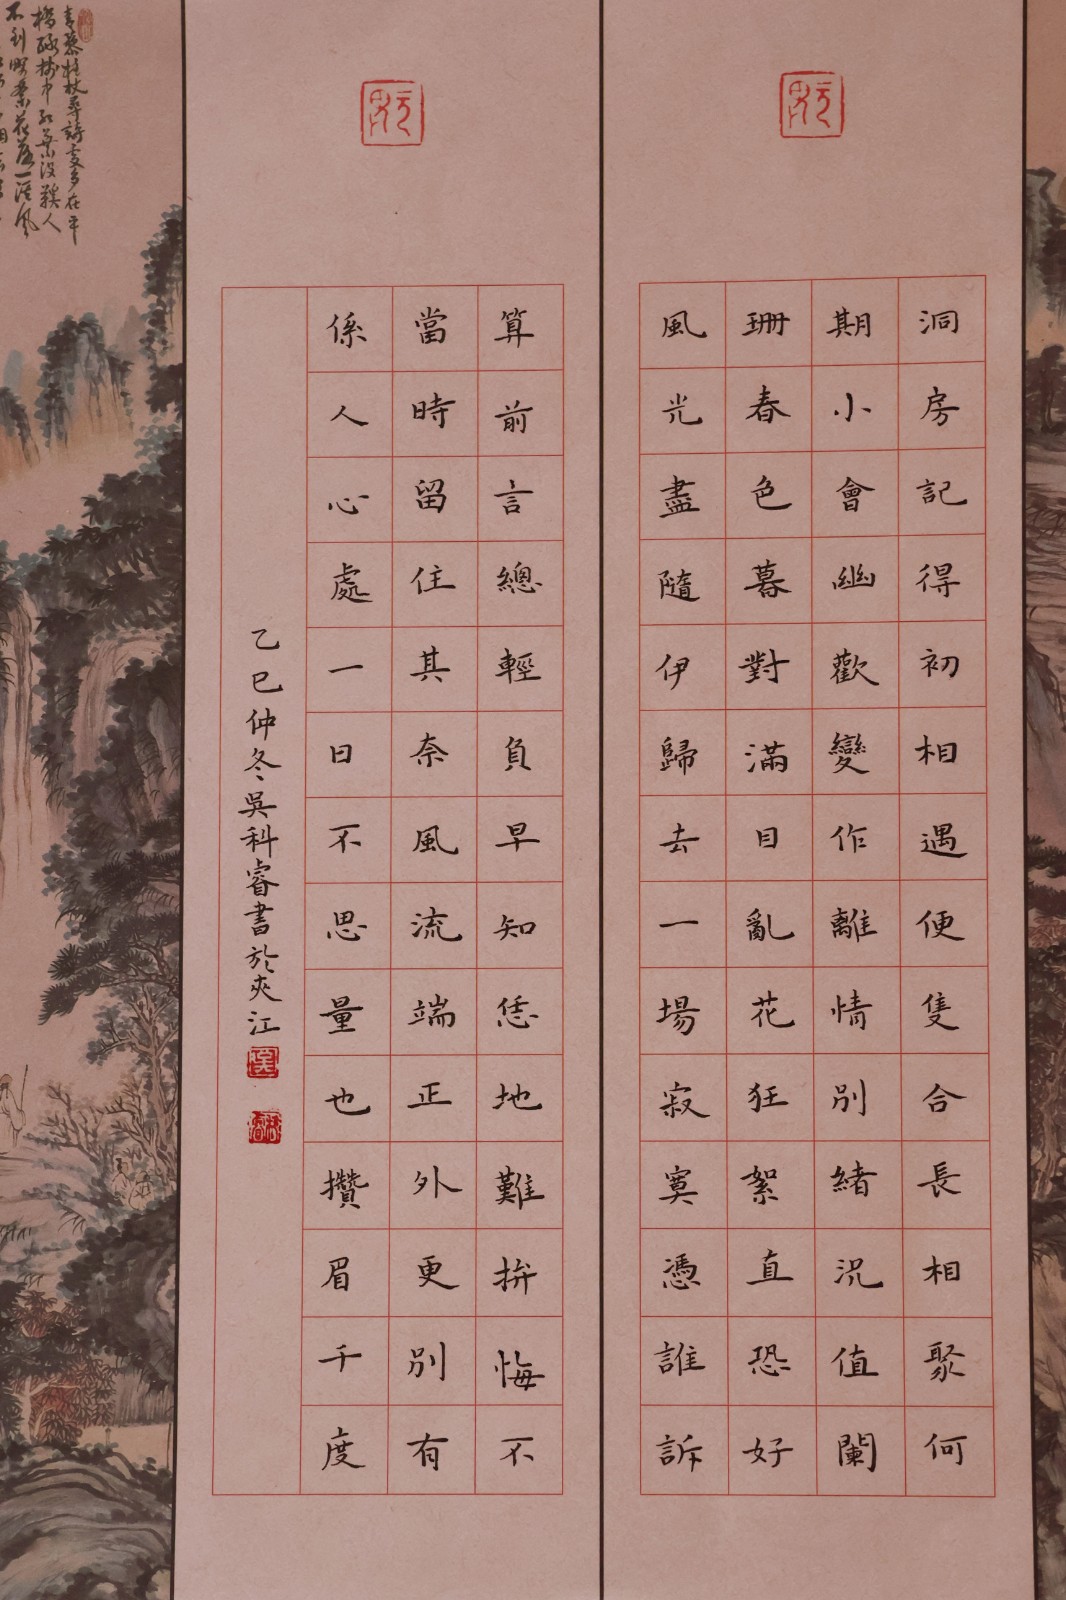 洞房記得初相遇便隻合長相聚何
期小會幽歡變作離情別緒況值闌
珊春色暮對滿目亂花狂絮直恐好
風光盡隨伊歸去一場寂寞憑誰訴
算前言總輕負早知恁地難拚悔不
當時留住其奈風流端正外更別有
係人心處一日不思量也攢眉千度
乙巳仲冬吳科睿書於夾江
吳